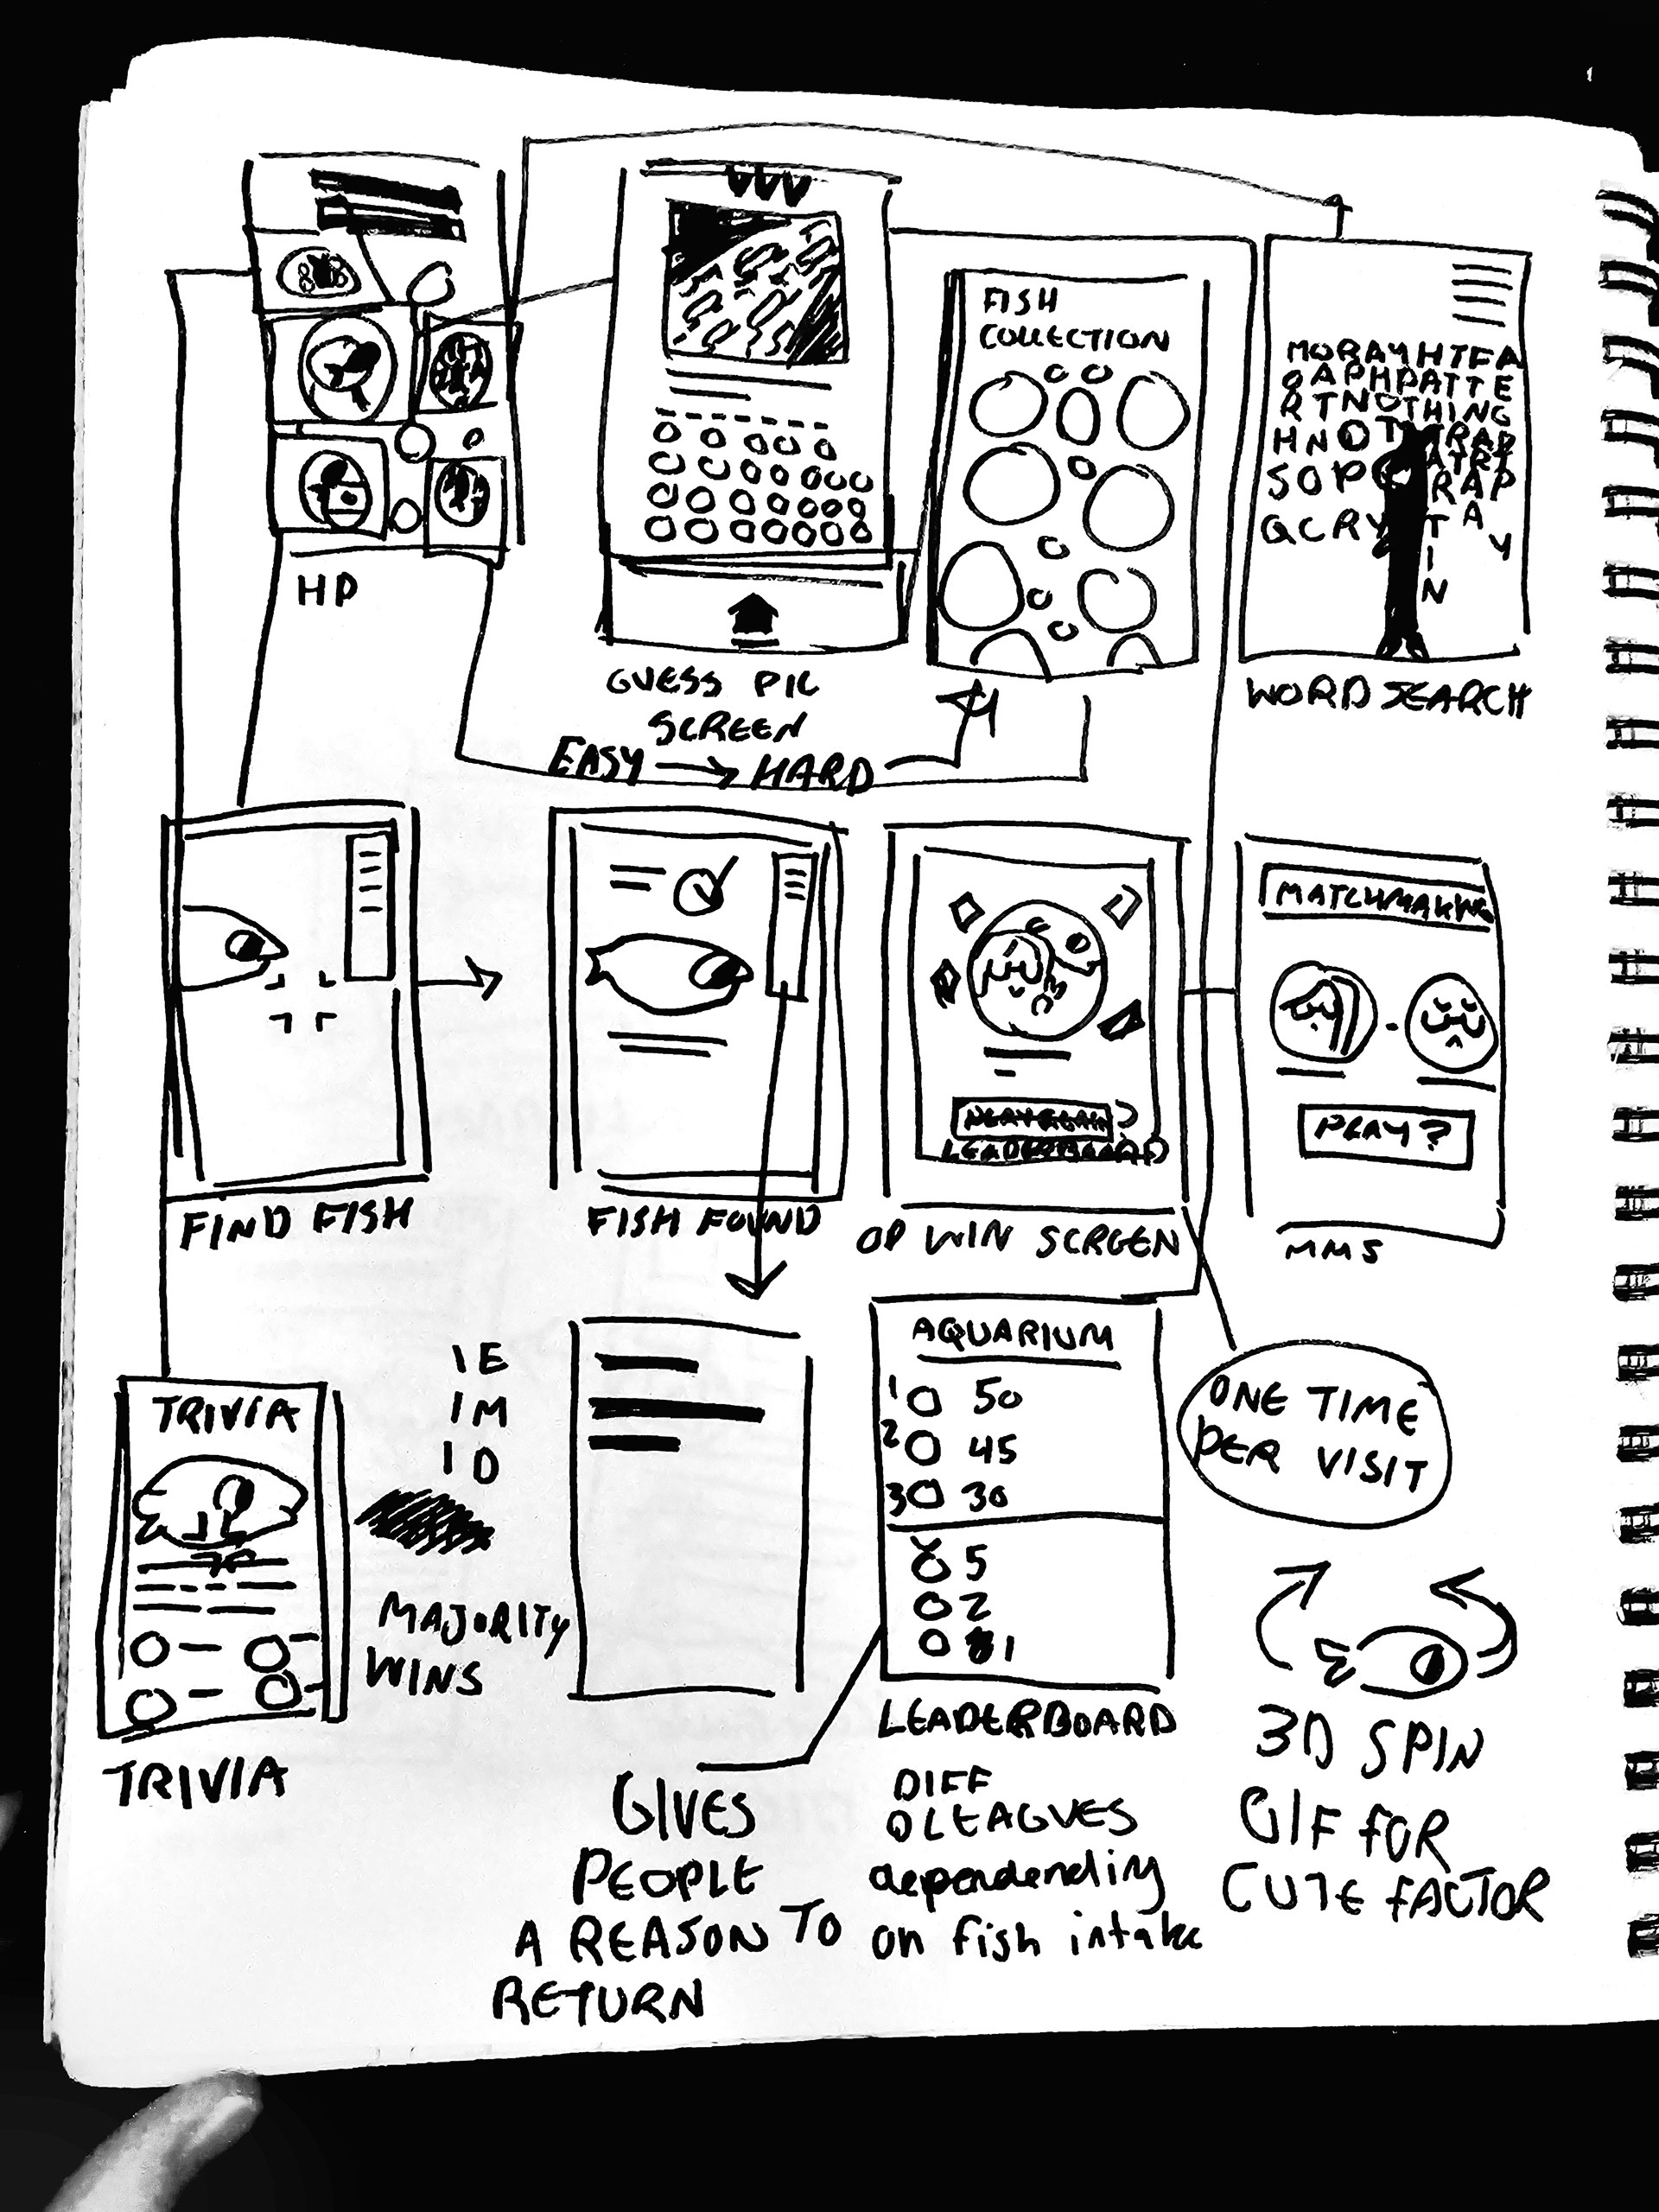 HP
GUESS PIC
SCREEN
EASY → HARD
FISH
COLLECTION
MORAYHTFA
OAPHPATTE
RTNOTHING
WORDSEARCH
FIND FISH
FISH FOUND
PLAY AGAIN?
LEADERBOARD
OP WIN SCREEN
MATCHMAKING
PLAY?
MMS
TRIVIA
TRIVIA
1 E
1 M
1 D
MAJORITY
WINS
AQUARIUM
1 50
2 45
3 30
5
2
1
LEADERBOARD
GIVES
PEOPLE
A REASON TO
RETURN
DIFF
LEAGUES
dependending
on fish intake
ONE TIME
PER VISIT
3D SPIN
GIF FOR
CUTE FACTOR